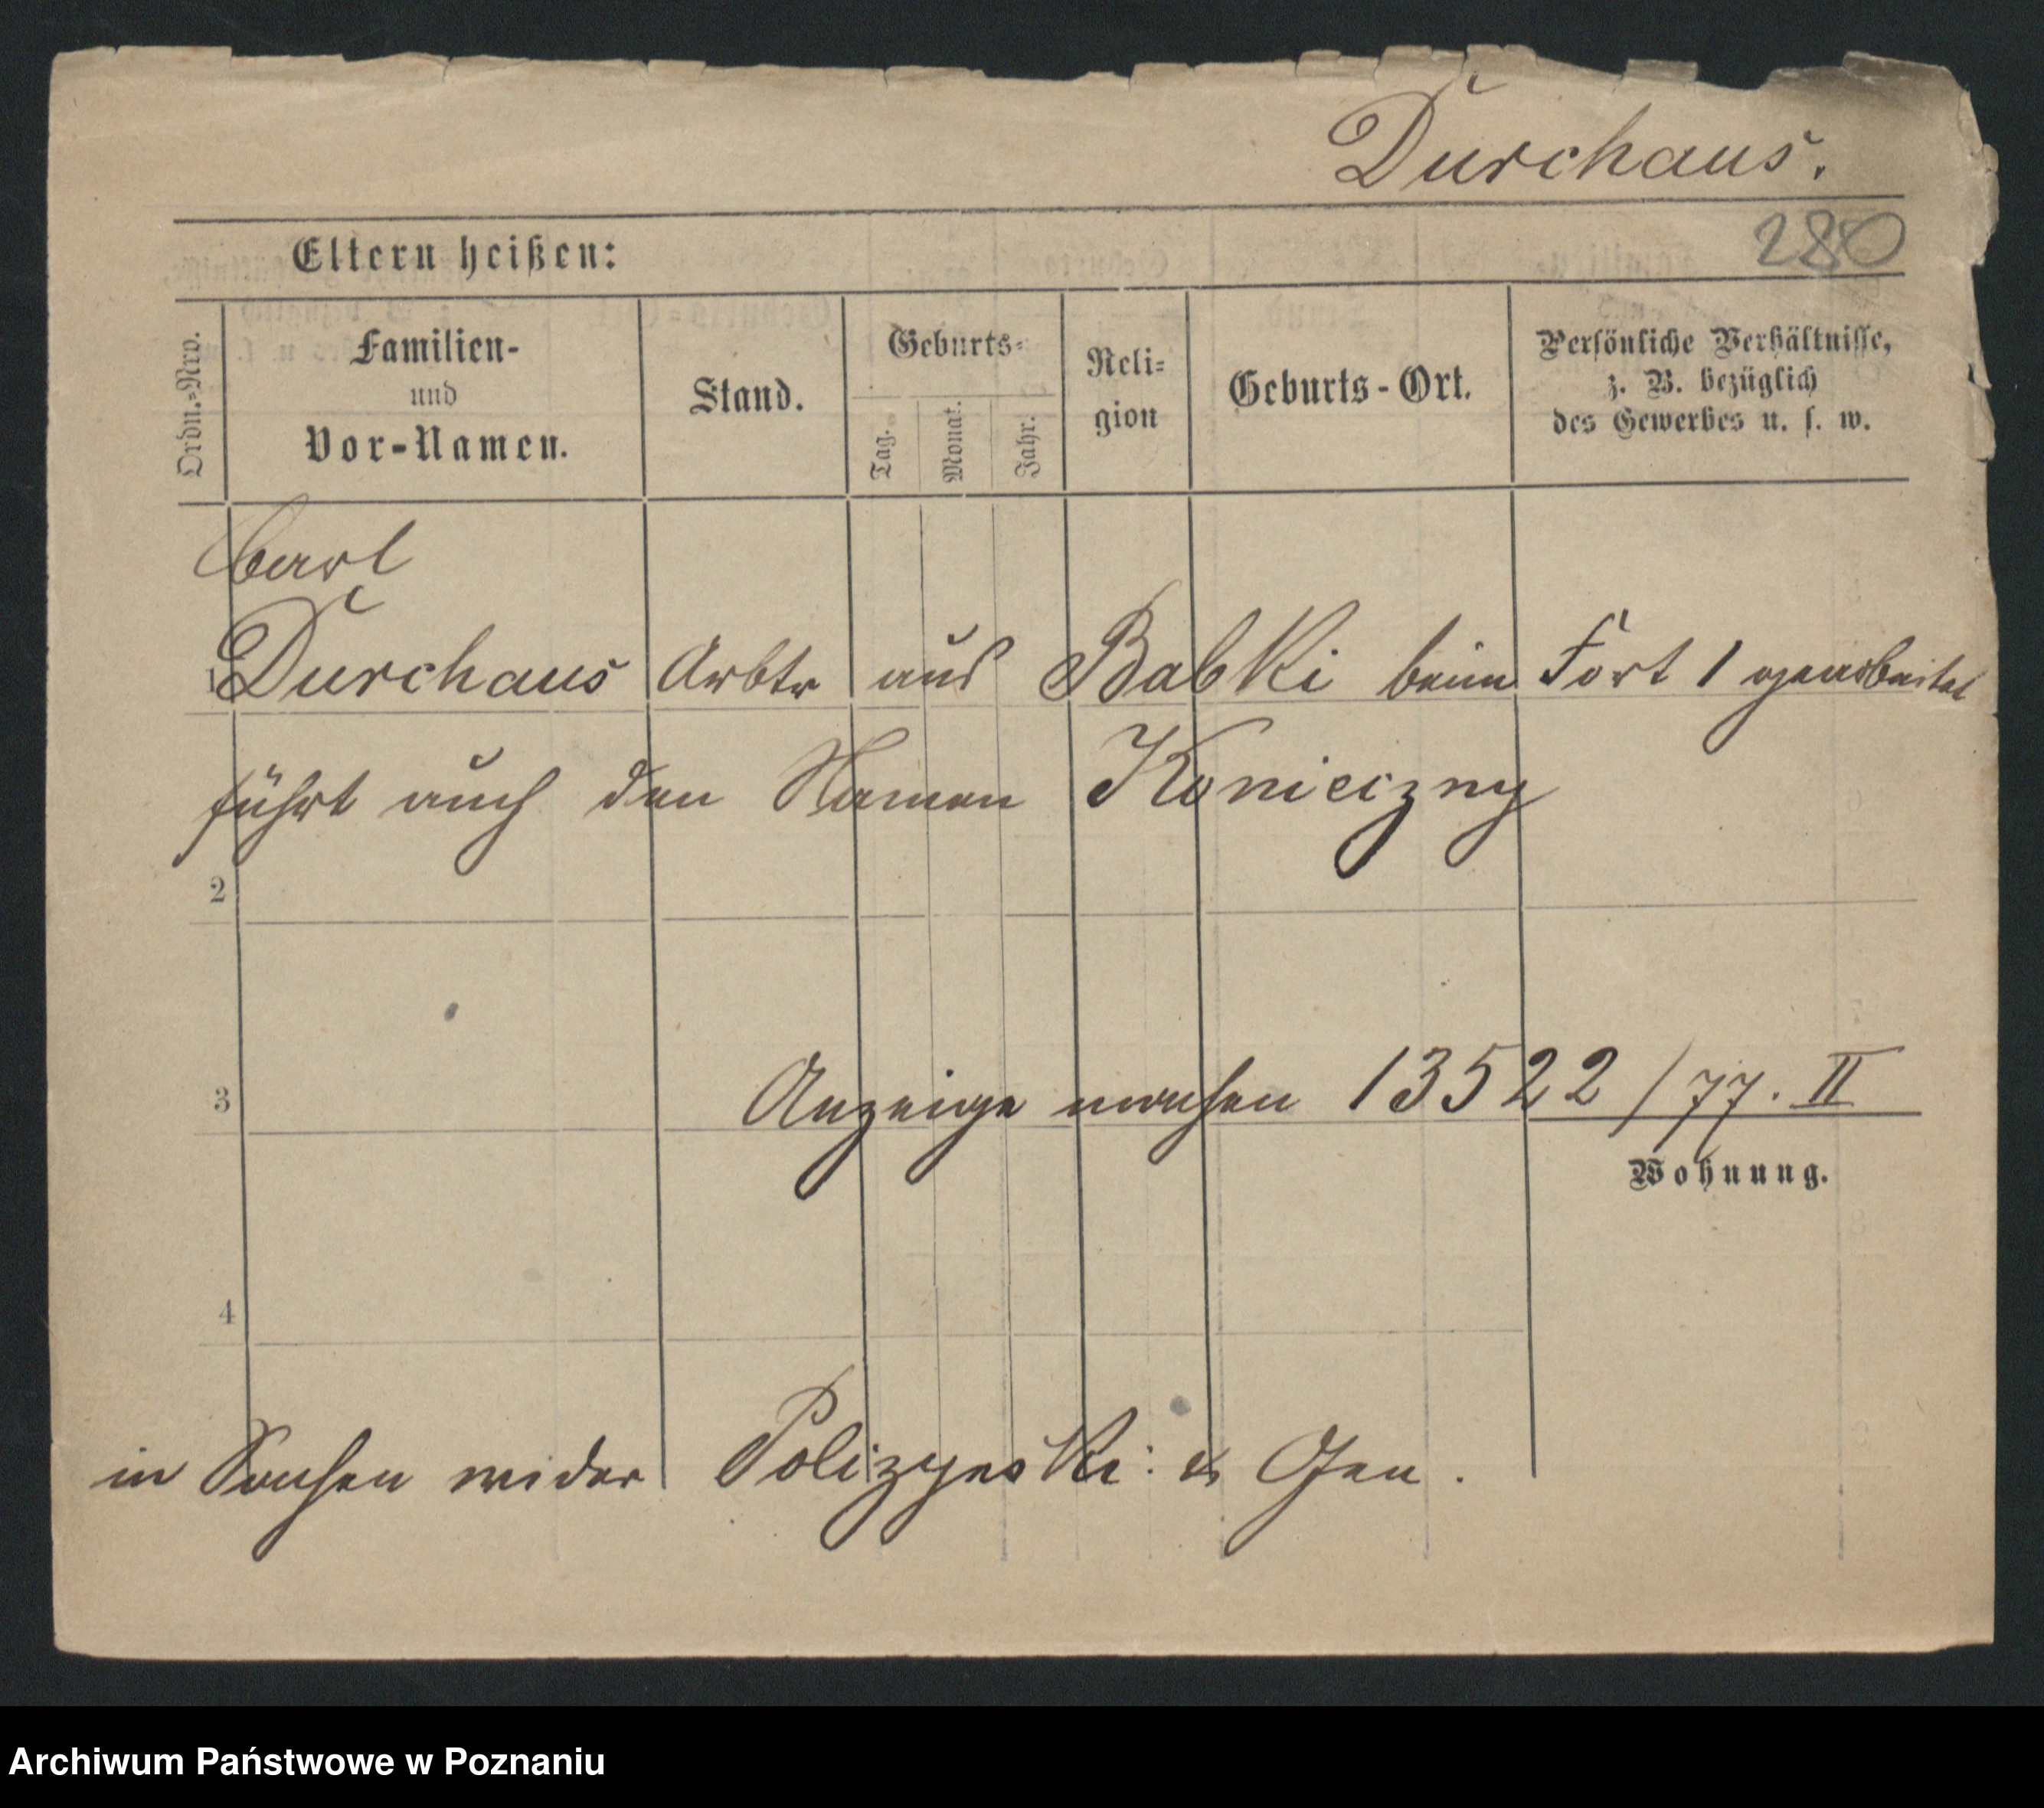 Durchaus.
280
Eltern heißen:
Ordn.-Nro.
Familien-
und
Vor-Namen.
Stand.
Geburts-
Tag.
Monat.
Jahr.
Reli-
gion
Geburts-Ort.
Persönliche Verhältnisse,
z. B. bezüglich
des Gewerbes u. s. w.
Carl
1 Durchaus Arbtr aus Babki beim Fort 1 gearbeitet
führt auch den Namen Konieczny
2
3 Anzeige machen 13522/77. II
Wohnung.
4
in Sachen wider & Gen.
Archiwum Państwowe w Poznaniu